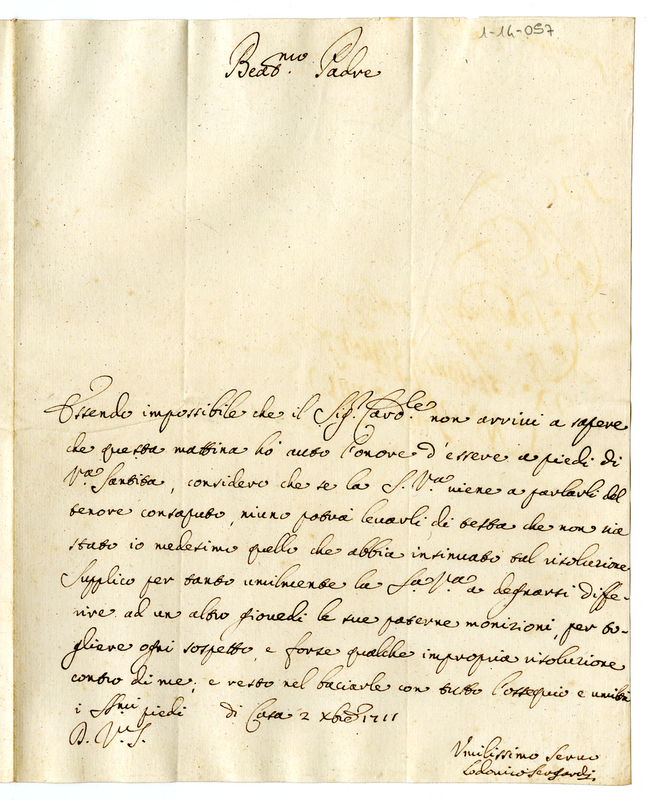 1-14-057
Beat.mo Padre
Essendo impossibile che il Sig.r Card.le non arrivi a sapere
che questa mattina hò auto l'onore d'essere a piedi di
V.ra Santità, considero che se la S. V.ra viene a parlarli del
tenore consaputo, niuno potrà levarli di testa che non sia
stato io medesimo quello che abbia insinuato tal risoluzione
Supplico per tanto umilmente la S.tà V.ra a degnarsi diffe-
rire ad un altro giovedi le sue paterne monizioni, per to-
gliere ogni sospetto, e forse qualche impropria risoluzione
contro di me; e resto nel baciarle con tutto l'ossequio e umiltà
i SS.mi piedi di Casa 2 Xbre 1711
D. V. S.
Umilissimo Servo
Lodovico Sergardi